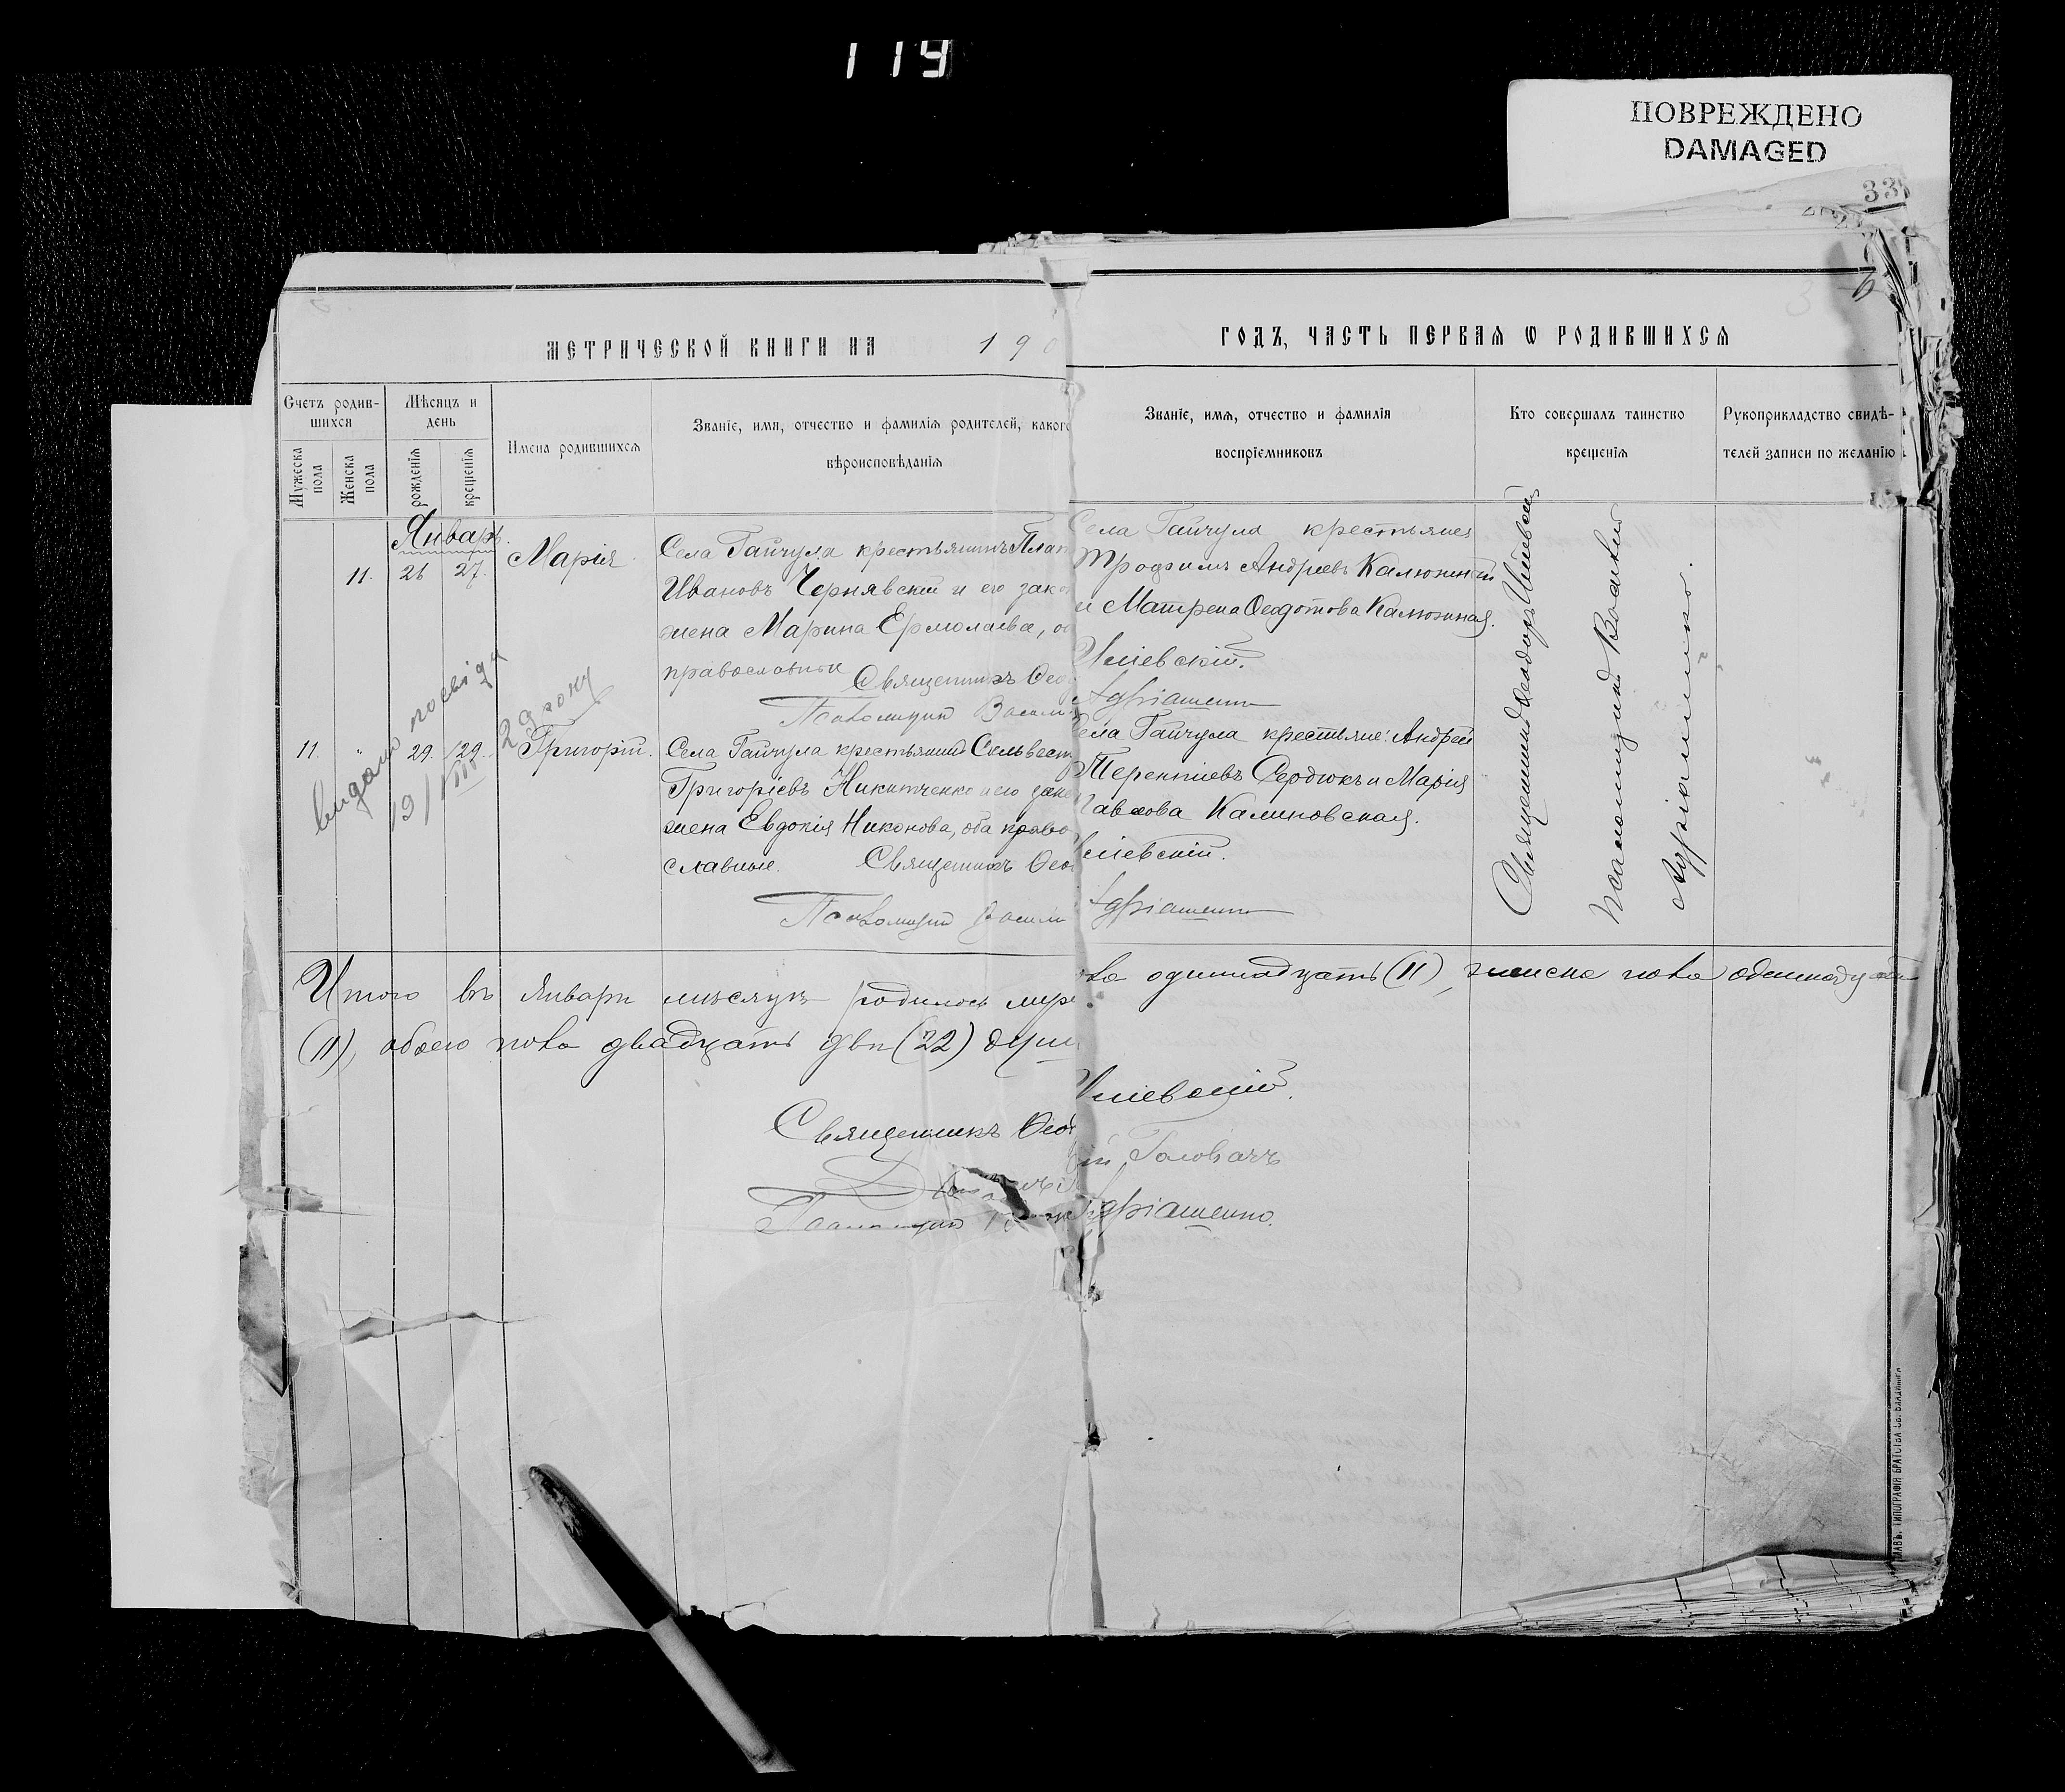 119
ПОВРЕЖДЕНО
DAMAGED
33
МЕТРИЧЕСКОЙ КНИГИ НА 190
ГОДЪ, ЧАСТЬ ПЕРВАЯ Ѡ РОДИВШИХСЯ
Счетъ родив-
шихся
Мужеска
пола
Женска
пола
Мѣсяцъ и
день
рожденія
крещенія
Имена родившихся
Званіе, имя, отчество и фамилія родителей, каког
вѣроисповѣданія
Званіе, имя, отчество и фамилія
воспріемниковъ
Кто совершалъ таинство
крещенія
Рукоприкладство свидѣ-
телей записи по желанію
Январь.
11. 26 27. Марія.
Села Гайчула крестьянинъ Плат
Ивановъ Чернявскій и его зако
жена Марина Ермолаева, об
православные Священникъ Ѳео
Псаломщик Васили
Села Гайчула крестьяне
Трофимъ Андреевъ Калюжный
и Матрена Ѳедотова Калюжная.
Адріашенко
видано посвід
19/VIII 29 року
11. " 29. 29. Григорій.
Села Гайчула крестьянинъ Сельвест
Григоріевъ Никитченко и его зако
жена Евдокія Никонова, оба право
славные. Священникъ Ѳео
Псаломщик Васили
Села Гайчула крестьяне: Андрей
Терентіевъ Сердюкъ и Марія
Павлова Калиновская.
Адріашенко
Священникъ Ѳеодоръ
Псаломщикъ Василій
Адріашенко.
Итого въ Январѣ мѣсяцѣ родилось муж
ла одиннадцать (11), женска пола одиннадцать
(11), обоего пола двадцать двѣ (22) души
Священникъ Ѳеод
ій Головачъ
Псаломщик
Адріашенко.
ТИПОГРАФІЯ БРАТСТВА СВ. ВЛАДИМІРА